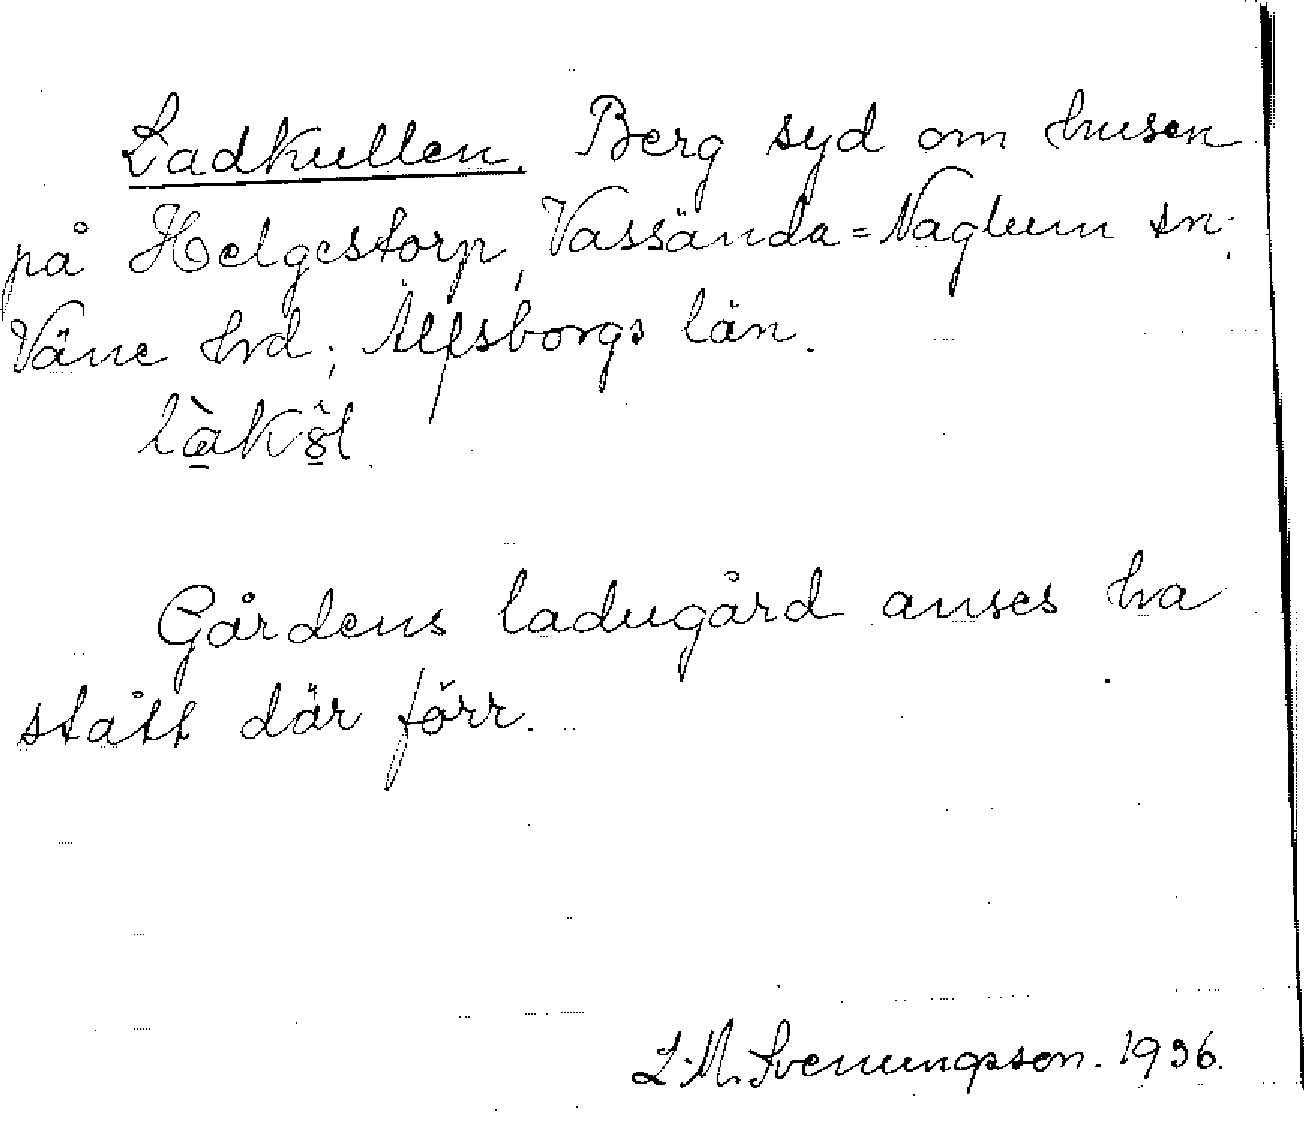 Ladkullen. Berg syd om husen
på Helgestorp, Vassända=Naglum sn;
Väne hd; Älfsborgs län.
Gårdens ladugård anses ha
stått där förr.
L.M. Svenungsson. 1936.